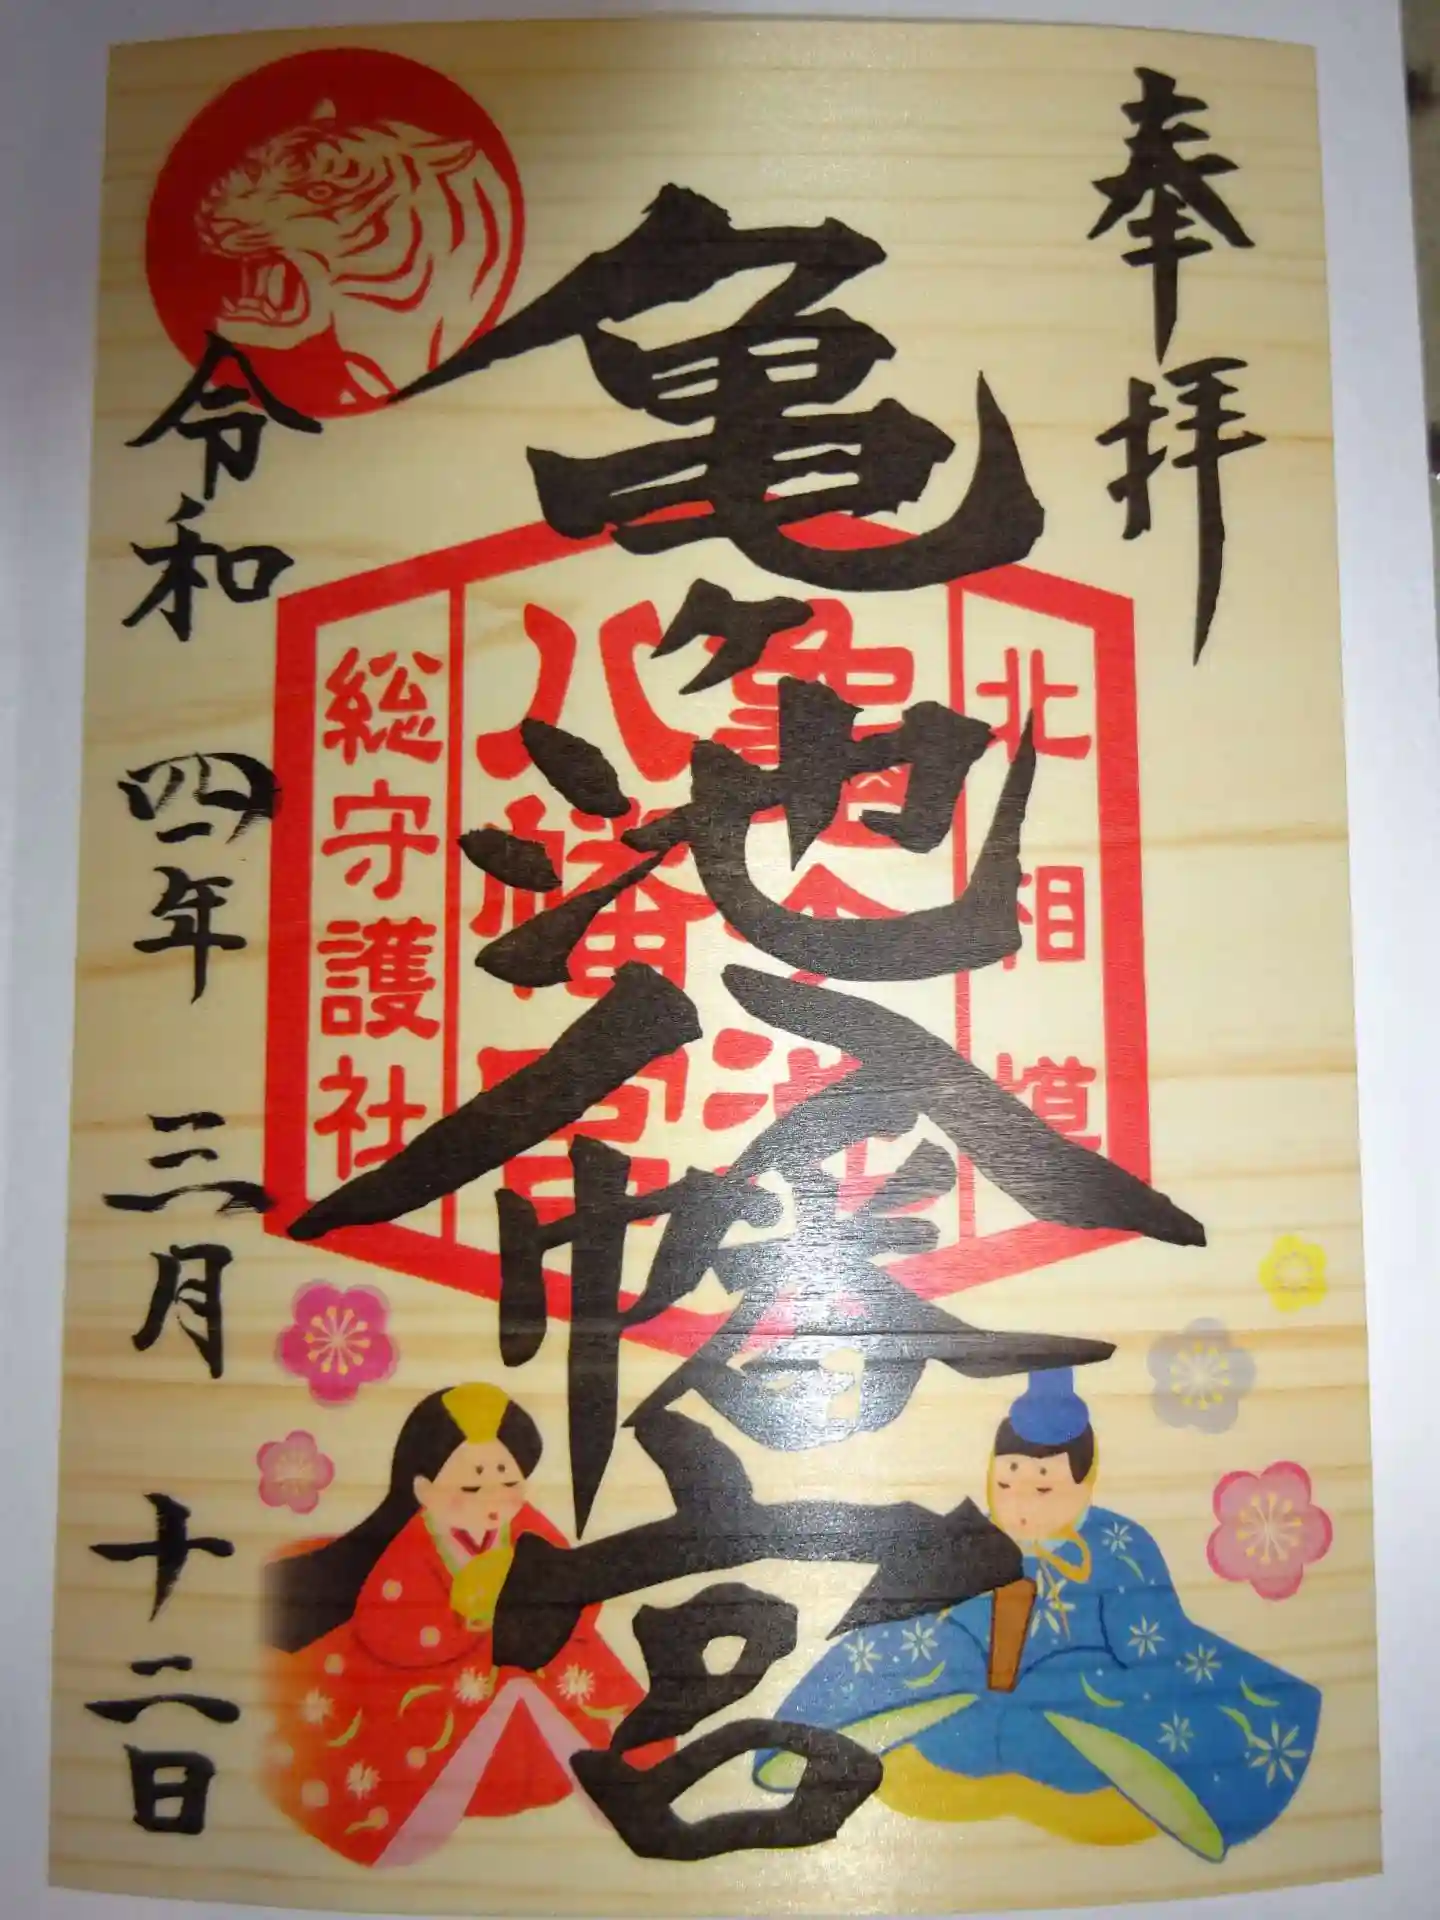 奉拝
亀ヶ池八幡宮
北相模
総守護社
令和四年三月十二日